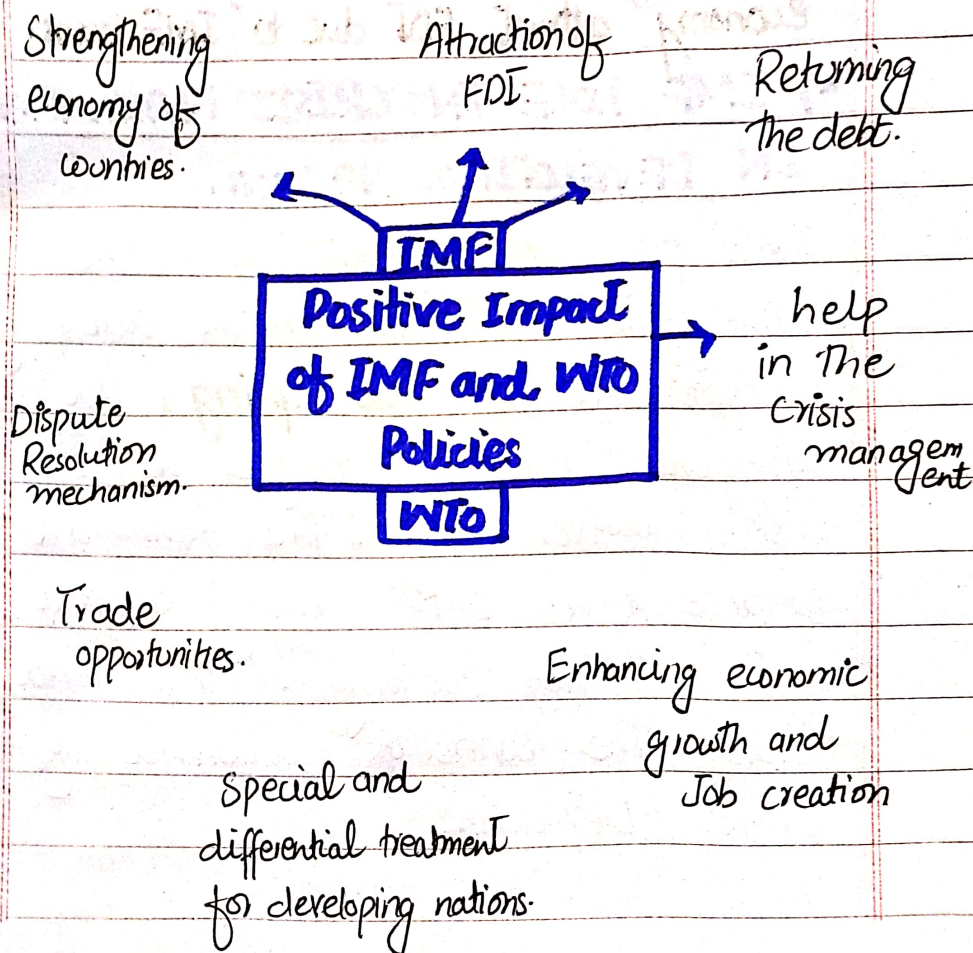 Strengthening
economy of
countries.
Attraction of
FDI.
Returning
the debt.
IMF
Positive Impact
of IMF and WTO
Policies
WTO
help
in the
Crisis
managem
ent
Dispute
Resolution
mechanism.
Trade
opportunities.
Enhancing economic
growth and
Job creation
Special and
differential treatment
for developing nations.